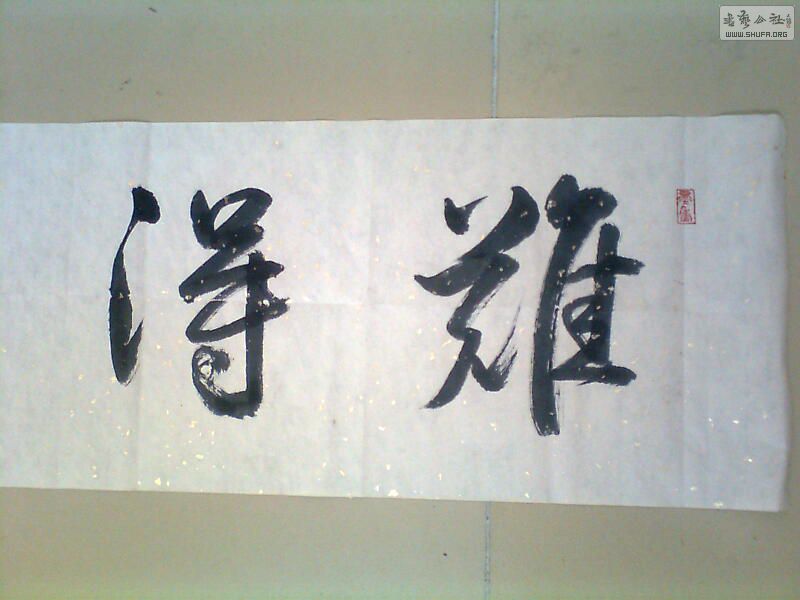 難得
書藝公社
WWW.SHUFA.ORG